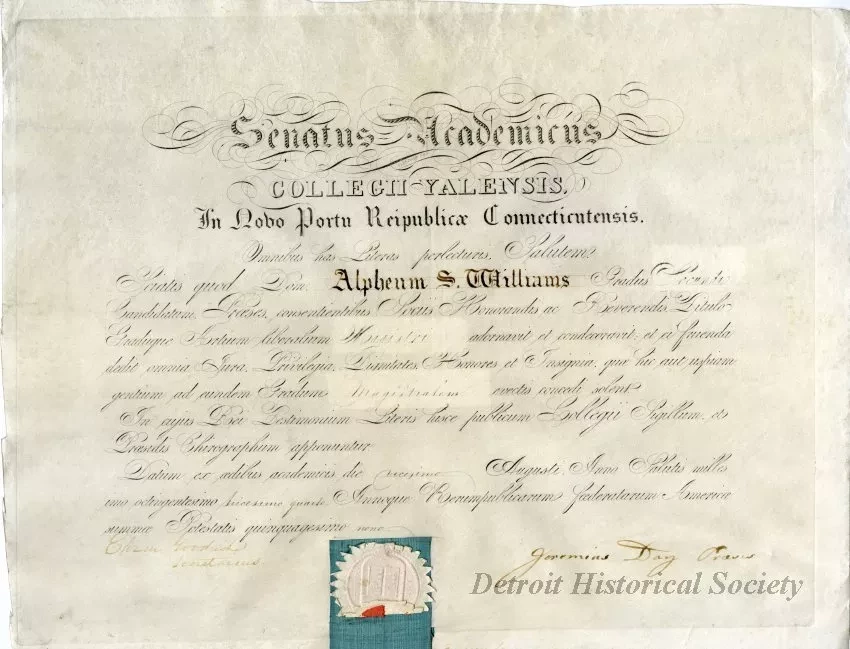 Senatus Academicus
COLLEGII YALENSIS,
In Novo Portu Reipublicæ Connecticutensis.
Omnibus has Literas perlecturis, Salutem.
Sciatis quod Dom. Alpheum S. Williams Gradus Secundi
Candidatum, Præses, consentientibus Sociis Honorandis ac Reverendis, Titulo
Graduque Artium liberalium Magistri adornavit et condecoravit; et ei fruenda
dedit omnia Jura, Privilegia, Dignitates, Honores et Insignia, quæ hic aut uspiam
gentium ad eundem Gradum Magistralem evectis concedi solent.
In cujus Rei Testimonium Literis hisce publicum Collegii Sigillum, et
Præsidis Chirographum apponuntur.
Datum ex ædibus academicis die vicesimo Augusti, Anno Salutis milles
imo octingentesimo tricesimo quarto Annoque Rerumpublicarum fœderatarum Americæ
summæ Potestatis quinquagesimo nono
Goodrich
Secretarius
Jeremias Day Præses
Detroit Historical Society